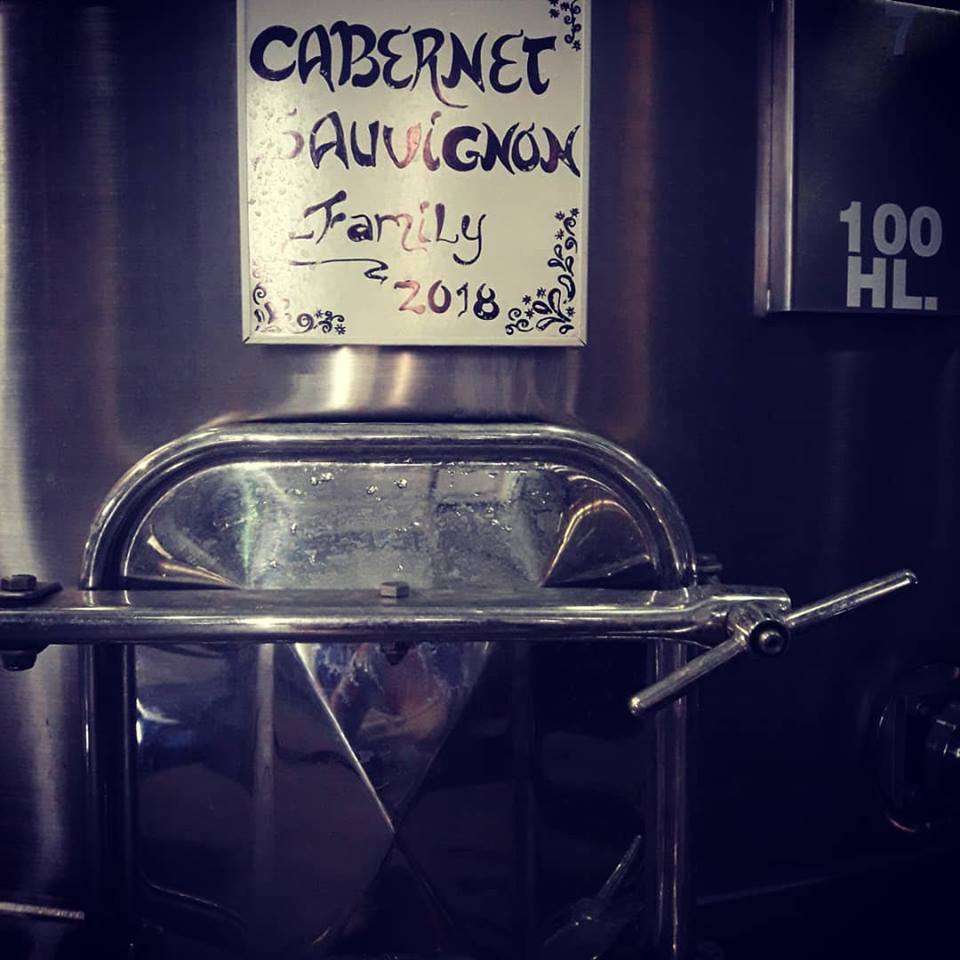 CABERNET
SAUViGNON
FamiLy
2018
7
100
HL.